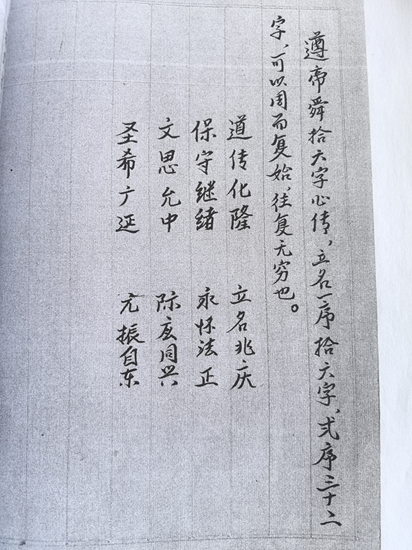 遵帝舜拾六字心传,立名一序拾六字,弍序三十二
字,可以周而复始,往复无穷也。
道传化隆 立名兆庆
保守继绪 永怀法正
文思允中 际同兴
圣希广延 振自东